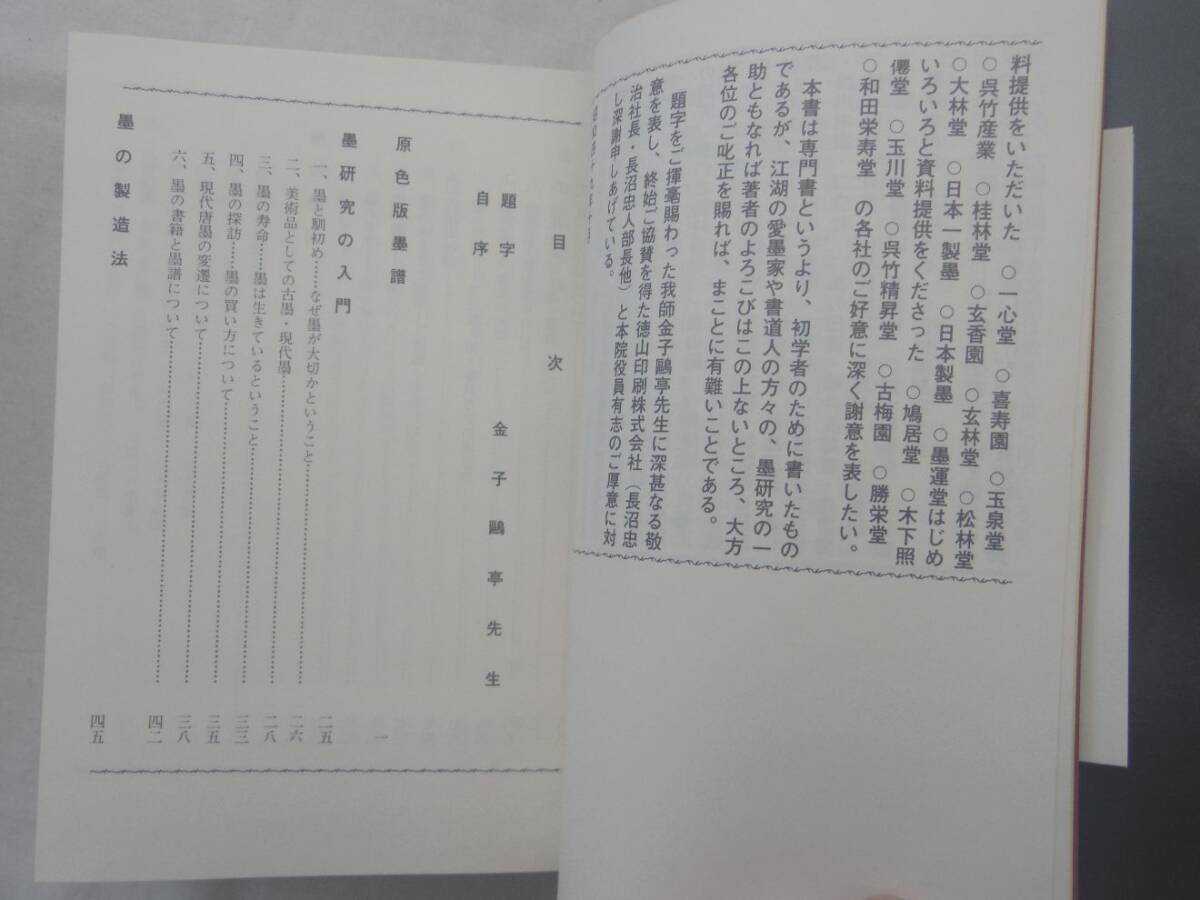 料提供をいただいた　○一心堂　○喜寿園　○玉泉堂
○呉竹産業　○桂林堂　○玄香園　○玄林堂　○松林堂
○大林堂　○日本一製墨　○日本製墨　○墨運堂はじめ
いろいろと資料提供をくださった　○鳩居堂　○木下照
僊堂　○玉川堂　○呉竹精昇堂　○古梅園　○勝栄堂
○和田栄寿堂　の各社のご好意に深く謝意を表したい。
本書は専門書というより、初学者のために書いたもの
であるが、江湖の愛墨家や書道人の方々の、墨研究の一
助ともなれば著者のよろこびはこの上ないところ、大方
各位のご叱正を賜れば、まことに有難いことである。
題字をご揮毫賜わった我師金子鷗亭先生に深甚なる敬
意を表し、終始ご協賛を得た徳山印刷株式会社（長沼忠
治社長・長沼忠人部長他）と本院役員有志のご厚意に対
し深謝申しあげている。
目次
題字　金子鷗亭先生
自序
原色版墨譜　一
墨研究の入門
一、墨と馴初め……なぜ墨が大切かということ　二五
二、美術品としての古墨・現代墨　二六
三、墨の寿命……墨は生きているということ　二八
四、墨の探訪……墨の買い方について　三三
五、現代唐墨の変遷について　三五
六、墨の書籍と墨譜について　三八
四二
墨の製造法　四五